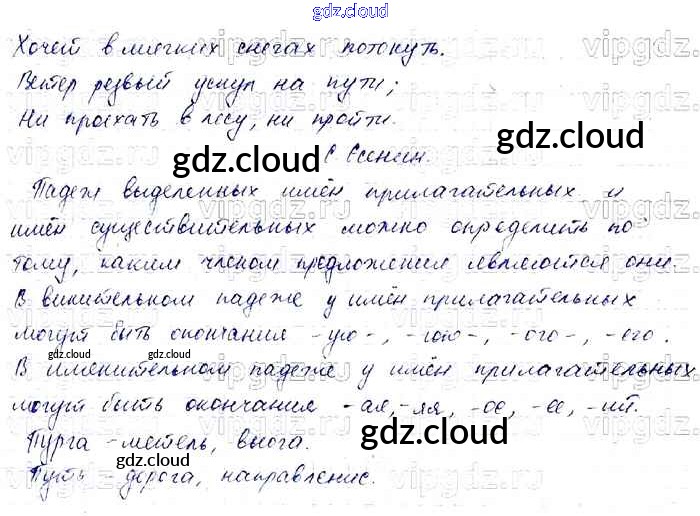 gdz.cloud
Хочет в мягких снегах потонуть.
Ветер резвый уснул на пути;
Ни проехать в лесу, ни пройти.
С Есенин.
gdz.cloud gdz.cloud
Падеж выделенных имён прилагательных и
имён существительных можно определить по
тому, каким членом предложения являются они.
В винительном падеже у имён прилагательных
могут быть окончания -ую-, -юю-, -ого-, -его.
gdz.cloud gdz.cloud gdz.cloud
В именительном падеже у имён прилагательных
могут быть окончания -ая, -яя, -ое, -ее, -ий.
gdz.cloud
Пурга - метель, вьюга.
gdz.cloud
Путь - дорога, направление.